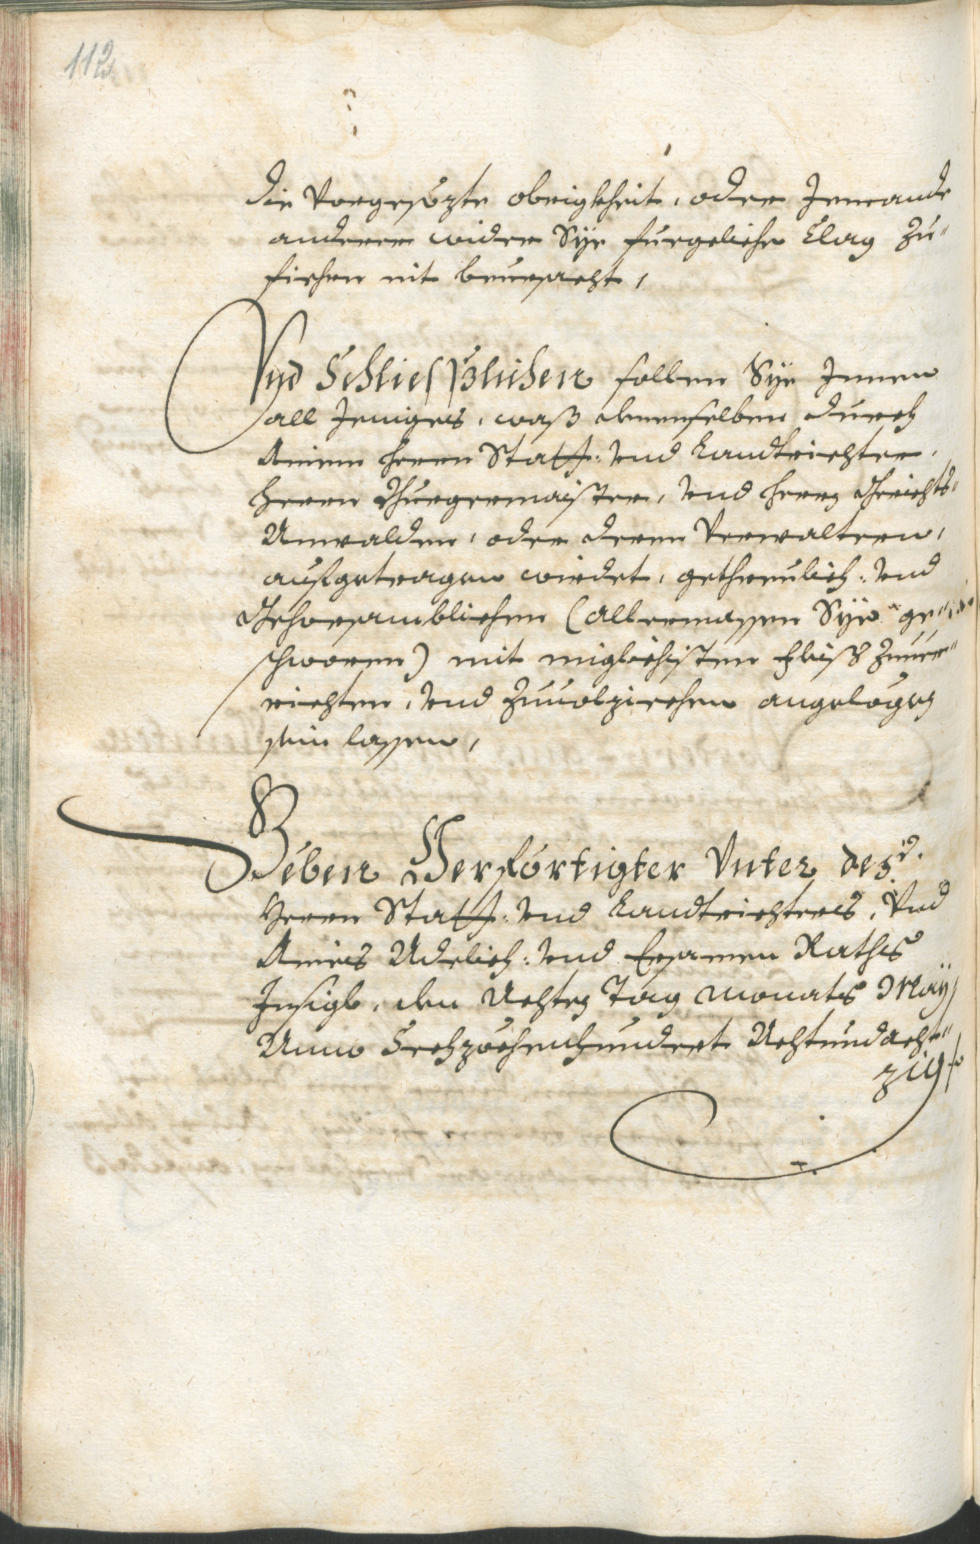 112
die Vorgesözte obrigkheit, oder Jemandt
anderer wider Sÿe fuegeliche Clag zu
fiehren nit beursacht,
Vnd Schließlichen sollen Sÿe Innen
all Jeniges, waß denenselben durch
Ainen herrn Statt: vnd Landtrichter,
herrn Burgermaister, vnd herrn Gerichts
Anwalden, oder deren Verwaltern,
aufgetragen wirdet, getheulich: vnd
Gehorsamblichen (allermassen Sÿe ge-
schworen) mit miglichisten fleiß Zuuer-
richten, vnd Zuuolziechen angelögen
sein lassen,
Geben Verförtigter Vnter des
Herrn Statt: vnd Landtrichters, Vnd
Aines Adelich: vnd Ersamen Raths
Insigl, den Achten Tag Monats Maÿ
Anno Sechzöchenhundert Achtundacht-
zig